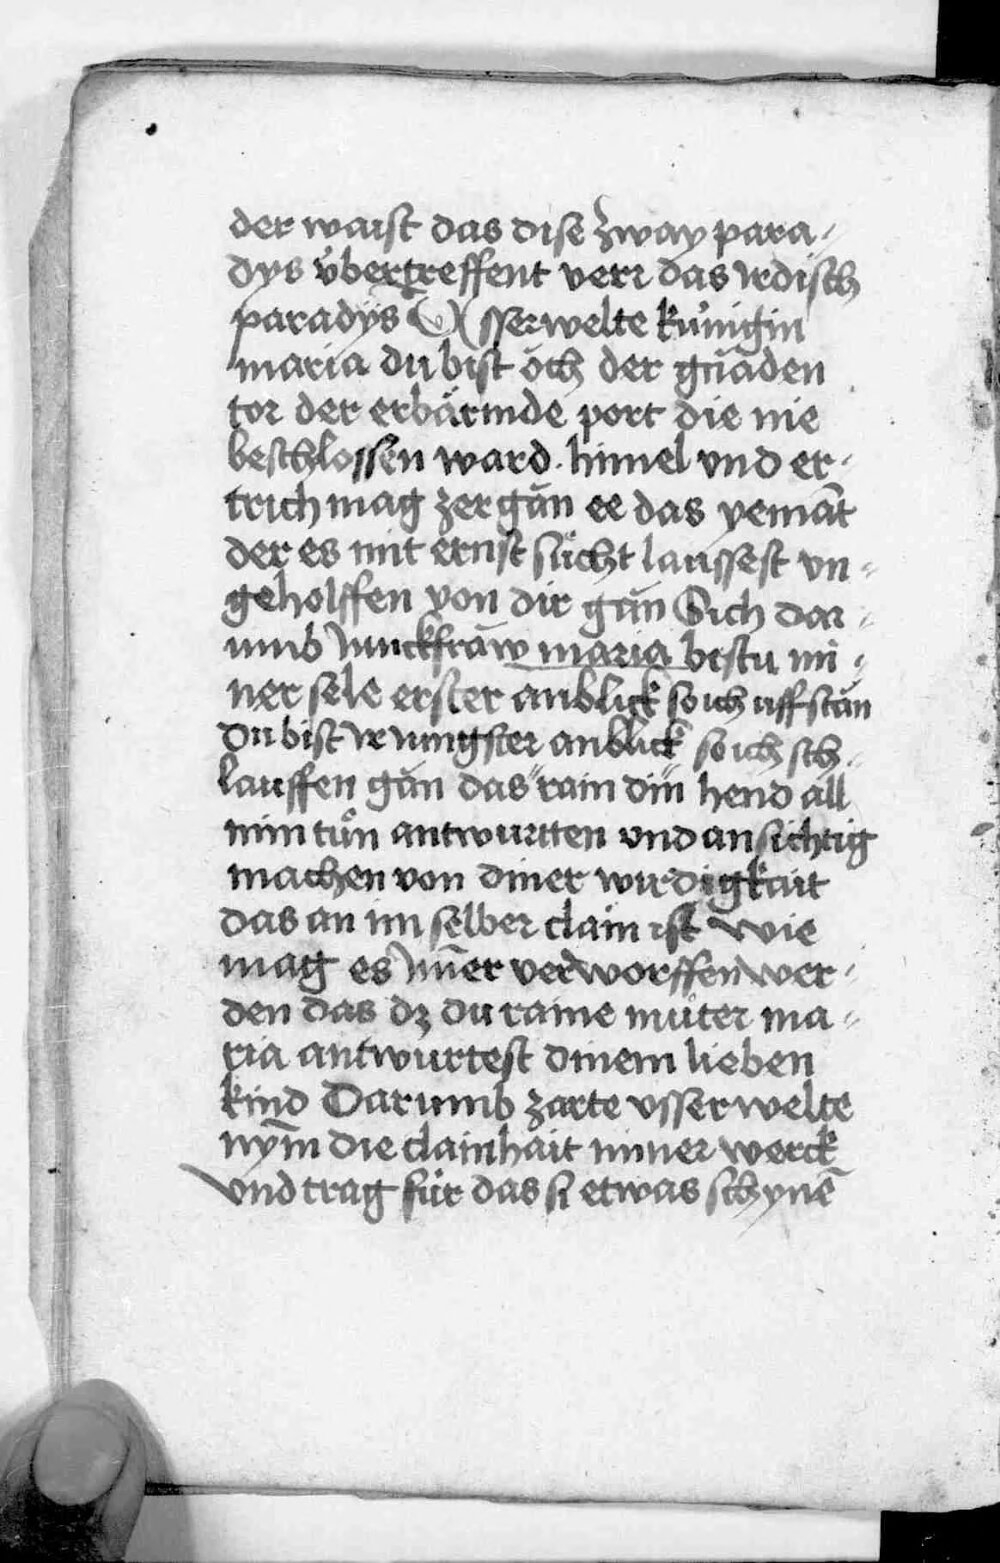 der waist das dise zway para-
dys v̈bertreffent verr das irdisch
paradÿs Vsserwelte kúnigin
maria du bist ŏch der gnaden
tor der erbärmde port die nie
beschlossen ward. himel vnd er-
trich mag zergăn ee das yemāt
der es mit ernst sücht laussest vn-
geholffen von dir găn Sich dar-
umb Junckfraw maria bistu mi-
ner sele erster anblick so ich uff stăn
Du bist ir iungster anblick so ich sch-
lauffen găn das rain din hend all
min tůn antwurtten vnd ansichtig
machen von diner wirdigkait
das an im selber clain ist wie
mag es Jm̄er verworffen wer-
den das dz du raine můter ma-
ria antwurtest dinem lieben
kind Darumb zarte vsserwelte
nym̄ die clainhait miner werck
vnd trag für das si etwas schynē